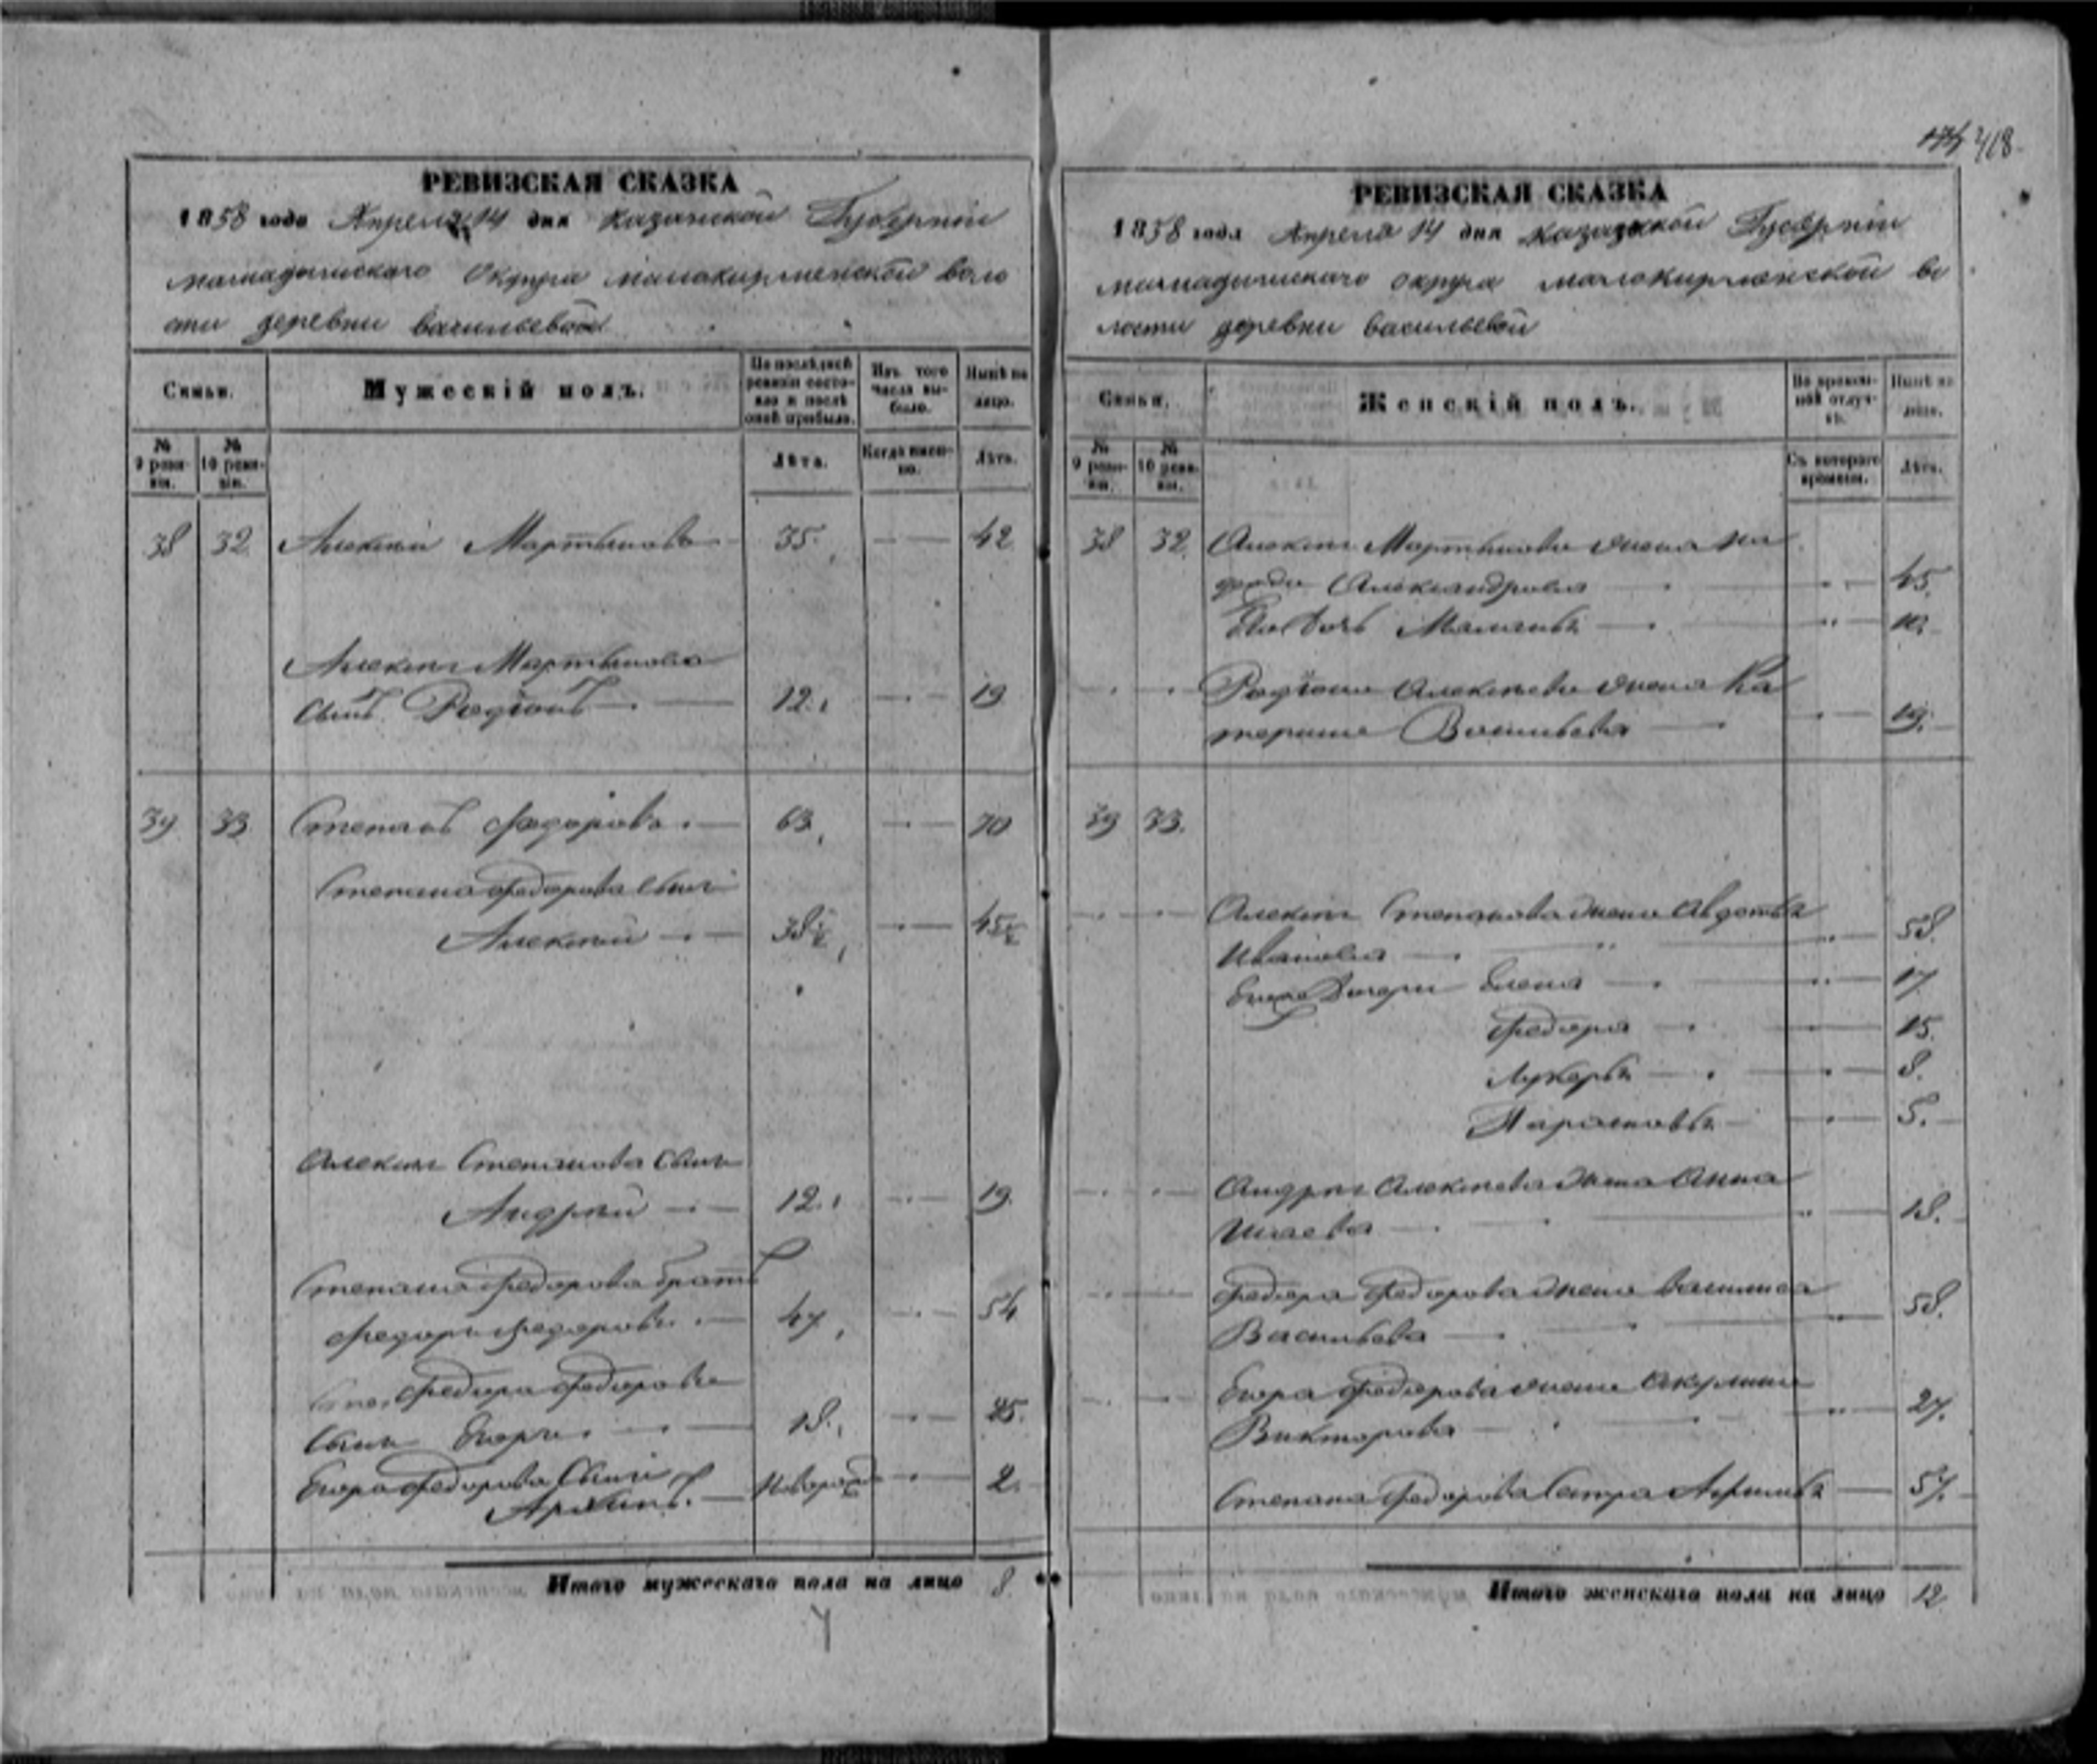 418
РЕВИЗСКАЯ СКАЗКА
1858 года Апреля 14 дня Казанской Губерніи
мамадышскаго Округа малокирменской воло
сти деревни васильевой
Семьи.
Мужескій полъ.
По послѣдней ревизіи состояло и послѣ оной прибыло.
Изъ того числа выбыло.
Нынѣ на лицо.
№ 9 ревизіи.
№ 10 ревизіи.
Лѣта.
Когда именно.
Лѣта.
38 32 Алексѣй Мартынова 35 42
Алексѣя Мартынова
сынъ Родіонъ 12 19
39 33 Степанъ Федорова 63 70
Степана Федорова сынъ
Алексѣй 38½ 45½
Алексѣя Степанова сынъ
Андрей 12 19
Степана Федорова братъ
Федоръ Федоровъ 47 54
Федора Федорова
сынъ Егоръ 18 25
Егора Федорова сынъ
Новорож 2
Итого мужескаго пола на лицо 8
РЕВИЗСКАЯ СКАЗКА
1858 года Апреля 14 дня Казанской Губерніи
мамадышскаго округа малокирменской во
лости деревни васильевой
Семьи.
Женскій полъ.
Во временной отлучкѣ.
Нынѣ на лицо.
№ 9 ревизіи.
№ 10 ревизіи.
Съ котораго времени.
Лѣта.
38 32 Алексѣя Мартынова жена
Александрова 45
дочь 10
Родіона Алексѣева жена Ка
терина Васильева 19
39 33
Алексѣя Степанова жена Авдотья
Иванова 38
дочери Елена 17
Федора 15
Лукерья 8
Парасковья 5
Андрея Алексѣева жена Анна
Исаева 18
Федора Федорова жена Василиса
Васильева 58
Егора Федорова жена Акулина
Викторова 27
Степана Федорова сестра 57
Итого женскаго пола на лицо 12